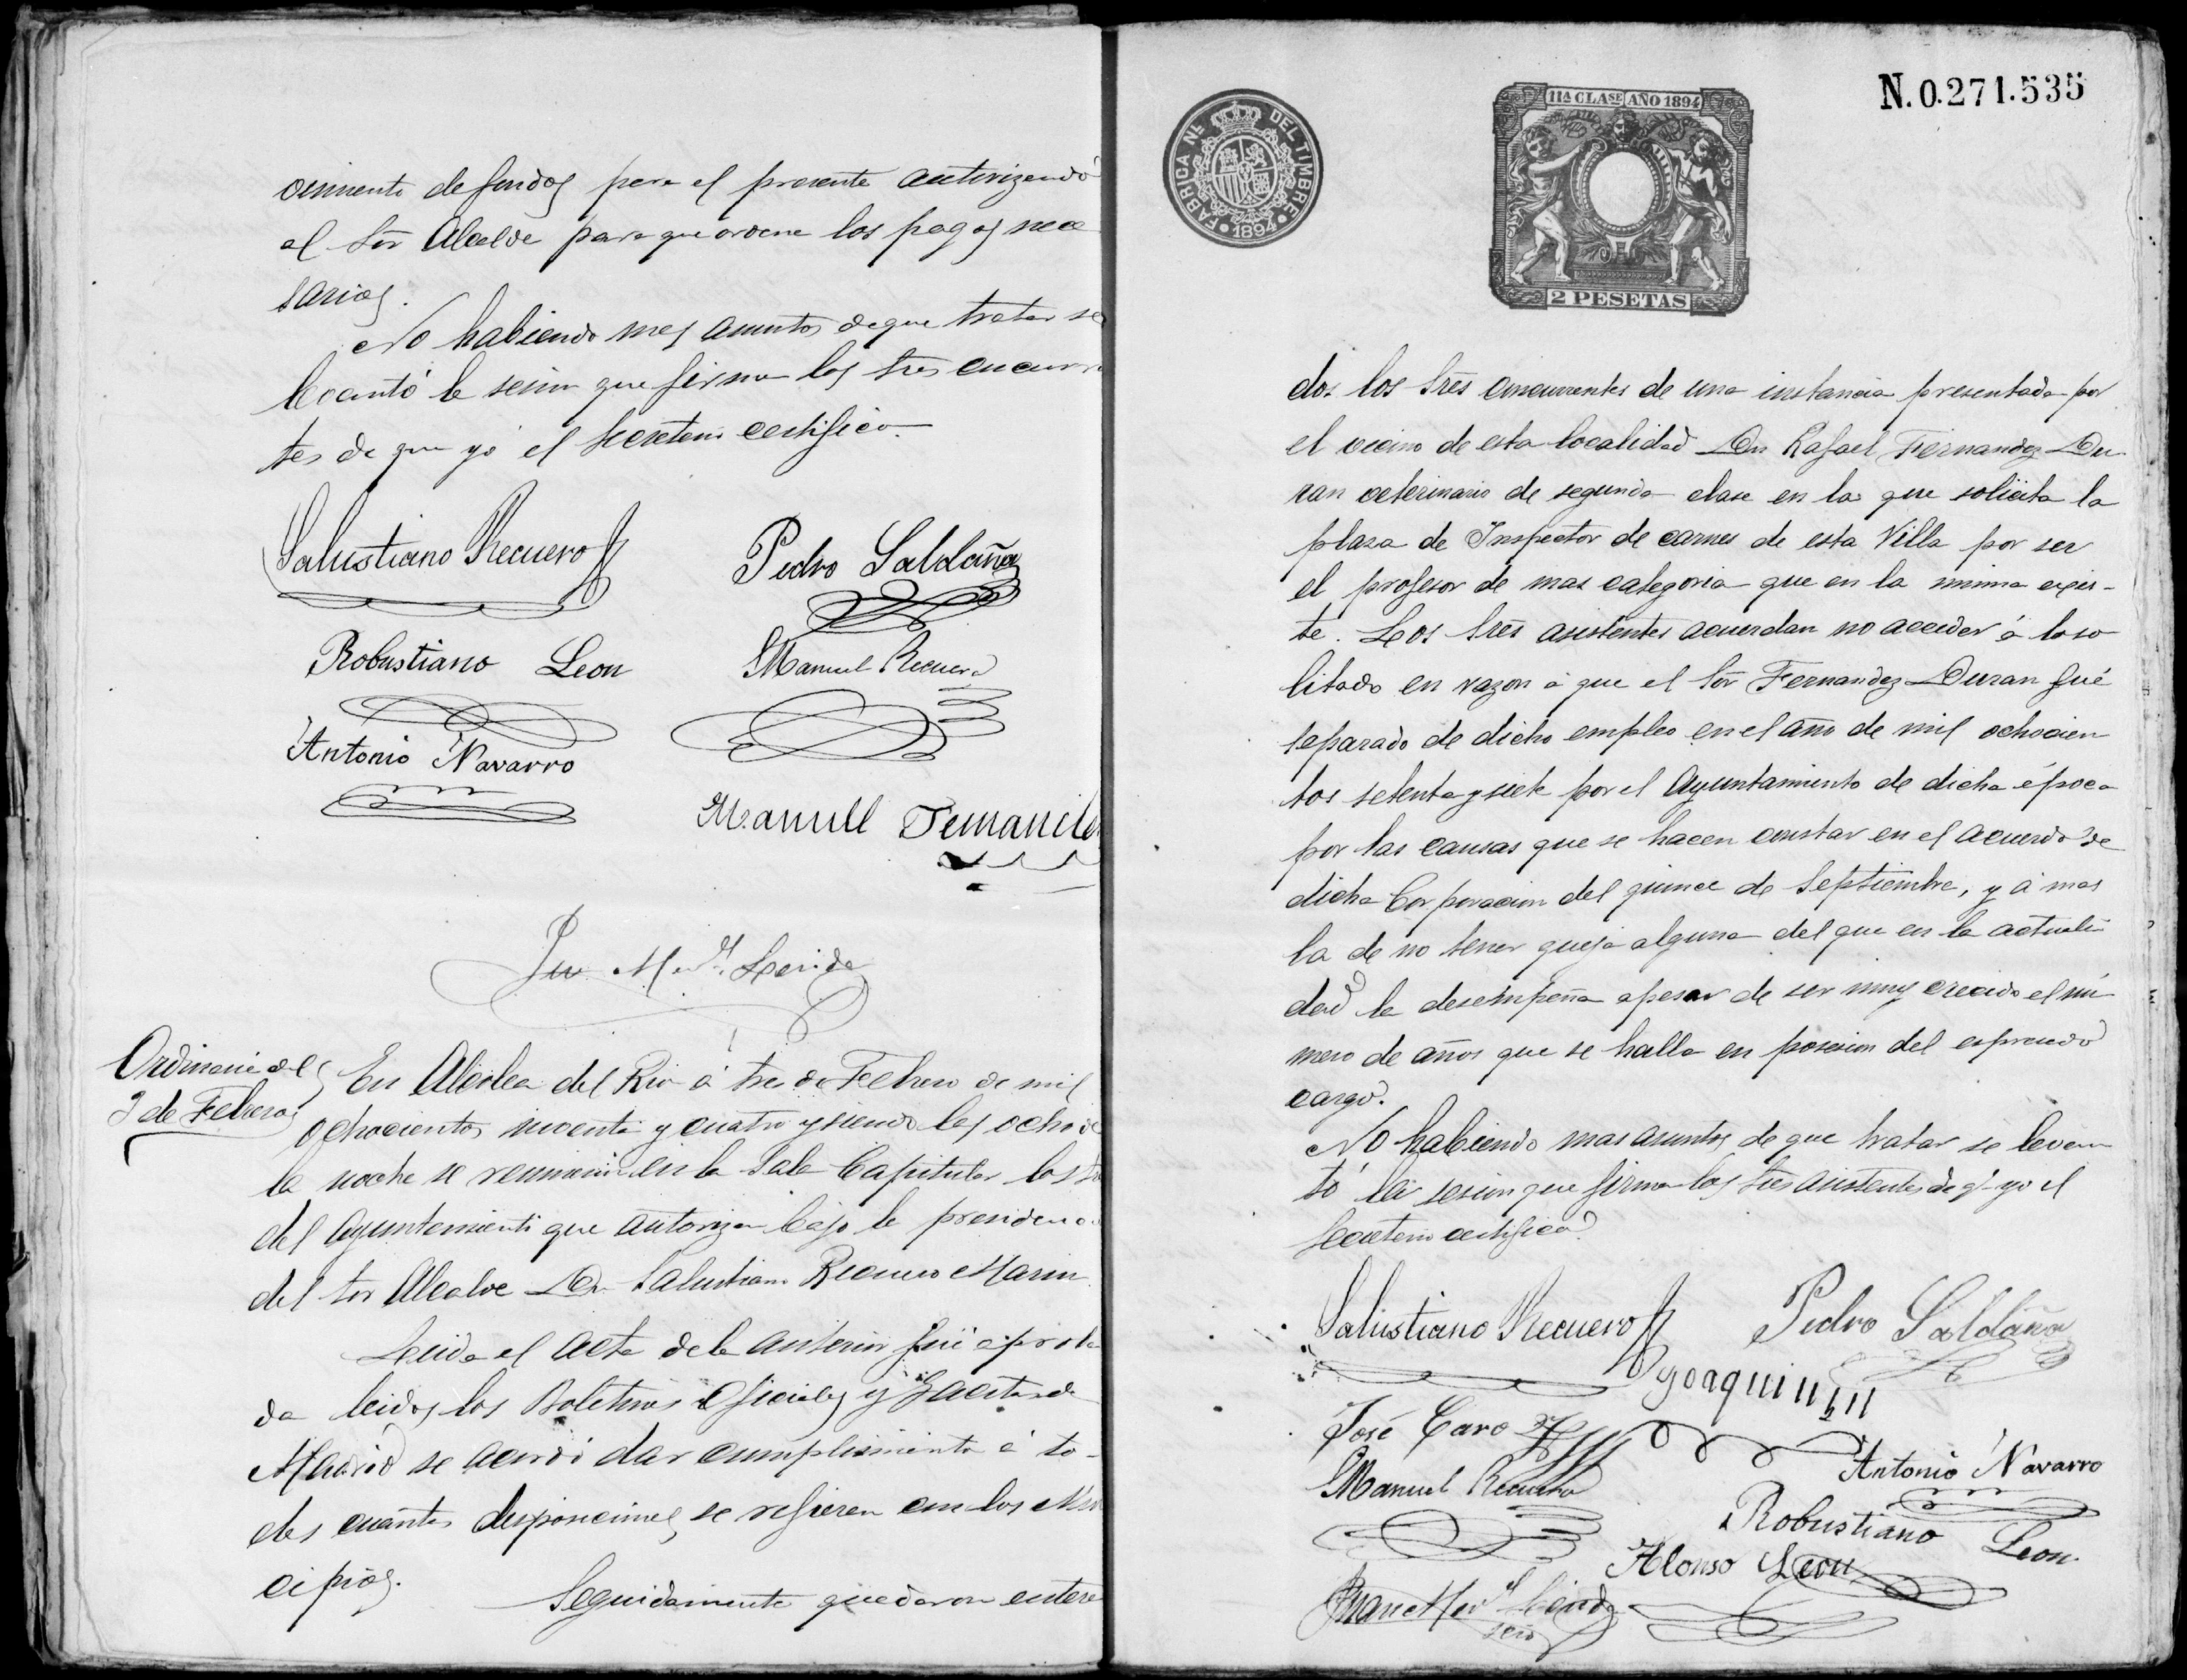 cimiento de fondos para el presente autorizando
al Sor Alcalde para que ordene los pagos nece
sarios.
No habiendo mas asuntos de que tratar se
levantó la sesion que firman los Sres concurren
tes de que yo el Secretario certifico.
Salustiano Recuero
Pedro Saldaña
Robustiano Leon
Manuel Recuero
Antonio Navarro
Manuel
Ordinaria del
3 de Febrero
En Alcolea del Rio á tres de Febrero de mil
ochocientos noventa y cuatro y siendo las ocho de
la noche se reunieron en la Sala Capitular los
del Ayuntamiento que autorizan bajo la presidencia
del Sor Alcalde Dn Salustiano Recuero Marin
Leida el acta de la anterior fué aproba
da leidos los Boletines Oficiales y Gacetas de
Madrid se acordó dar cumplimiento á to-
das cuantas disposiciones se refieren con los Mu
cipios.
Seguidamente quedaron entera
N.0.271.535
FABRICA NL DEL TIMBRE
1894
11A CLASE AÑO 1894
2 PESETAS
dos los Sres concurrentes de una instancia presentada por
el vecino de esta localidad Dn Rafael Fernandez Du
ran veterinario de segunda clase en la que solicita la
plaza de Inspector de carnes de esta Villa por ser
el profesor de mas categoria que en la misma exis-
te. Los Sres asistentes acuerdan no acceder á lo so
litado en razon á que el Sor Fernandez Duran fué
separado de dicho empleo en el año de mil ochocien
tos setenta y siete por el Ayuntamiento de dicha época
por las causas que se hacen constar en el acuerdo de
dicha Corporacion del quince de Septiembre, y á mas
la de no tener queja alguna del que en la actuali
dad la desempeña apesar de ser muy crecido el nú
mero de años que se halla en posesion del espresado
cargo.
No habiendo mas asuntos de que tratar se levan
tó la sesion que firman los Sres asistentes de q- yo el
Secretario certifico
Salustiano Recuero
Pedro Saldaña
Joaquin
José Caro
Antonio Navarro
Manuel Recuero
Robustiano Leon
Alonso Leon